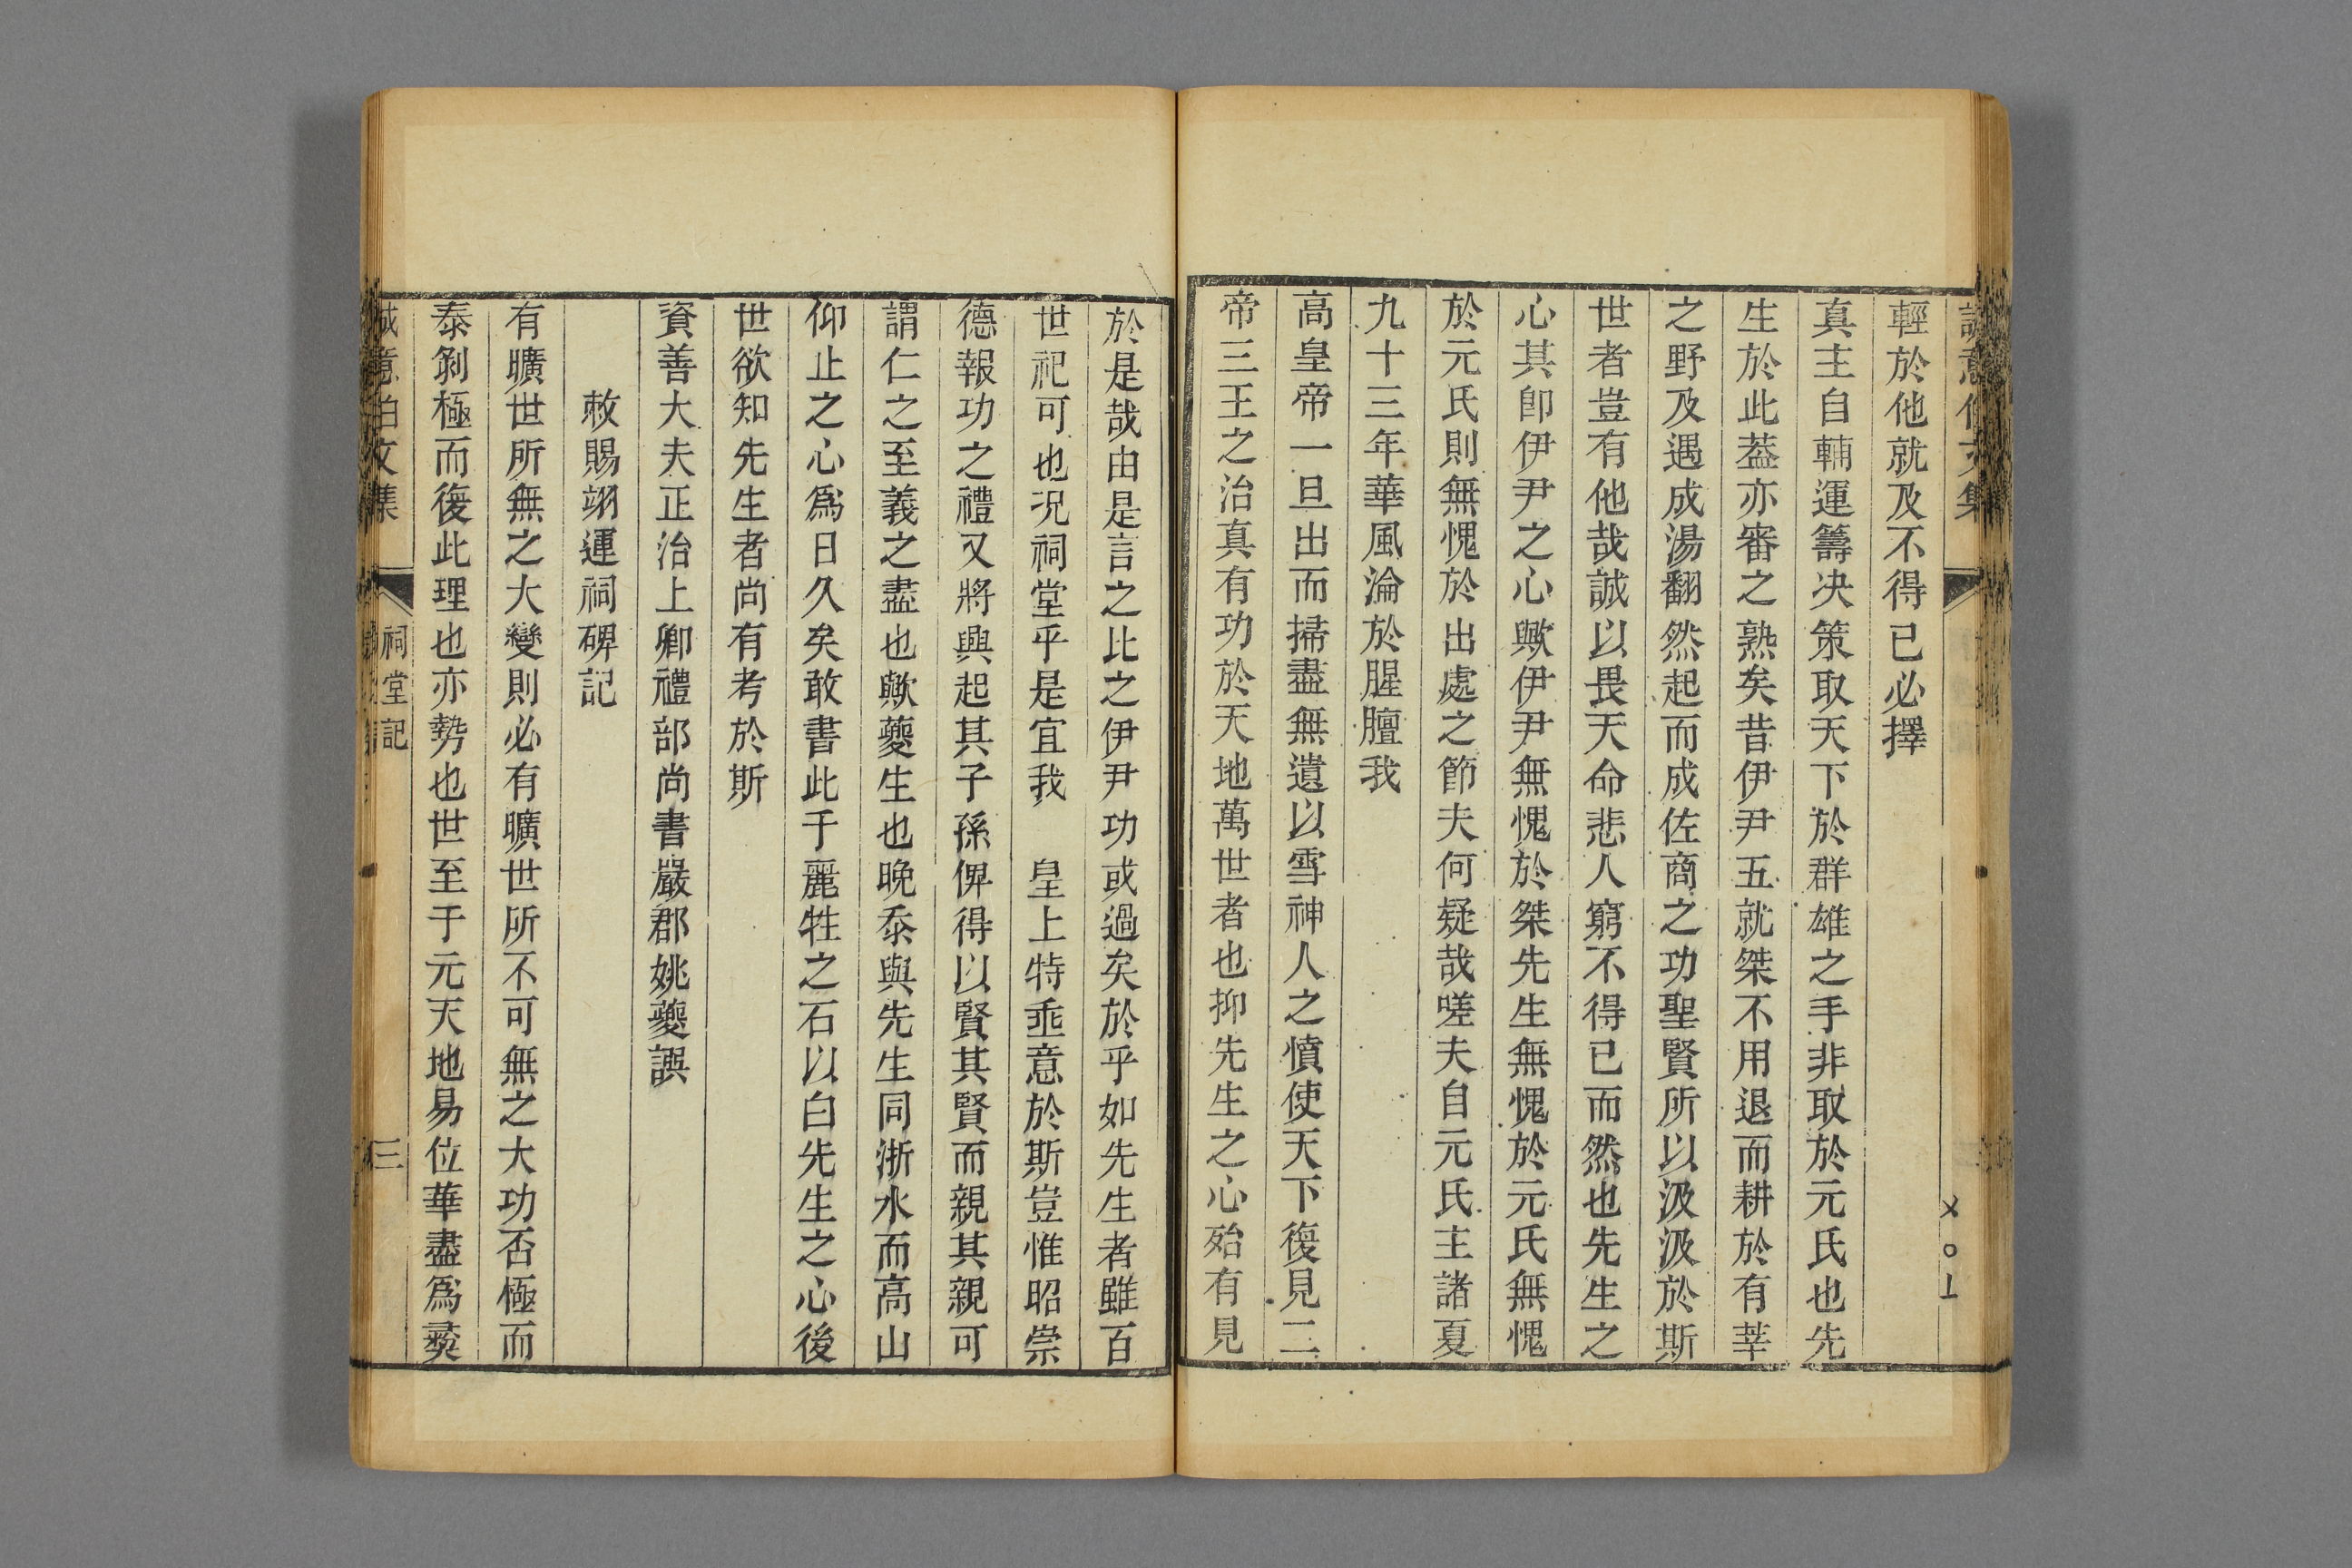 輕於他就及不得已必擇
真主自輔運籌决策取天下於群雄之手非取於元氏也先
生於此葢亦審之熟矣昔伊尹五就桀不用退而耕於有莘
之野及遇成湯翻然起而成佐商之功聖賢所以汲汲於斯
世者豈有他哉誠以畏天命悲人窮不得已而然也先生之
心其卽伊尹之心歟伊尹無愧於桀先生無愧於元氏無愧
於元氏則無愧於出處之節夫何疑哉嗟夫自元氏主諸夏
九十三年華風淪於腥膻我
高皇帝一旦出而掃盡無遺以雪神人之憤使天下復見二
帝三王之治真有功於天地萬世者也抑先生之心殆有見
於是哉由是言之比之伊尹功或過矣於乎如先生者雖百
世祀可也况祠堂乎是宜我　皇上特垂意於斯豈惟昭崇
德報功之禮又將興起其子孫俾得以賢其賢而親其親可
謂仁之至義之盡也歟夔生也晚忝與先生同浙水而高山
仰止之心爲日久矣敢書此于麗牲之石以白先生之心後
世欲知先生者尚有考於斯
資善大夫正治上卿禮部尚書嚴郡姚夔譔
敕賜翊運祠碑記
有曠世所無之大變則必有曠世所不可無之大功否極而
泰剝極而復此理也亦勢也世至于元天地易位華盡爲彛
誠意伯文集
祠堂記
三